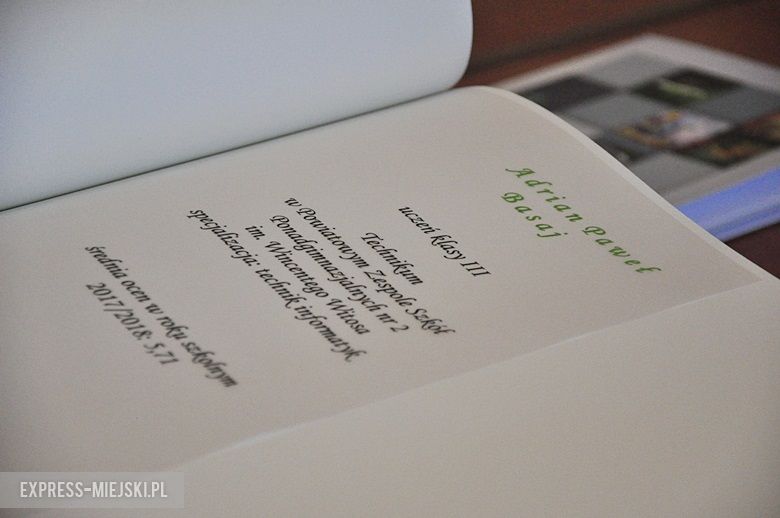 Adrian Paweł
Basaj
uczeń klasy III
Technikum
w Powiatowym Zespole Szkół
Ponadgimnazjalnych nr 2
im. Wincentego Witosa
specjalizacja: technik informatyk
średnia ocen w roku szkolnym
2017/2018: 5,71
EXPRESS-MIEJSKI.PL